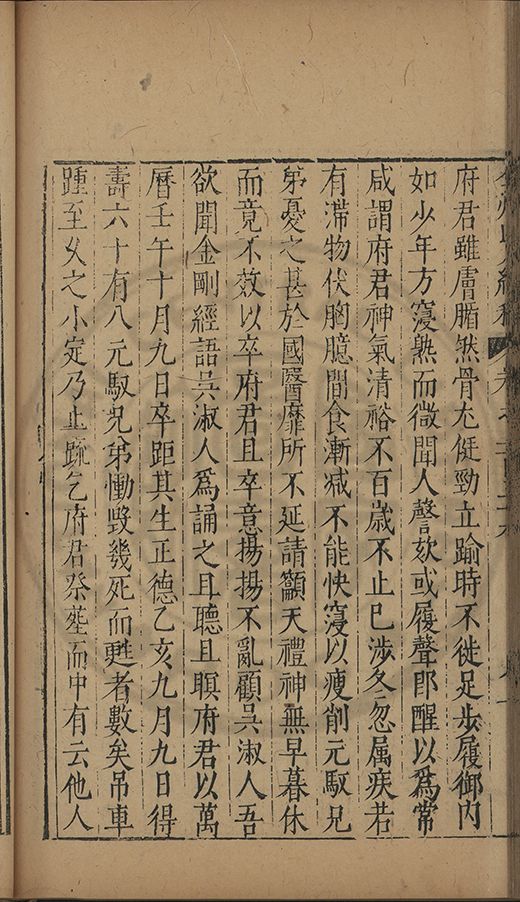 府君雖膚腯然骨尤侹勁立踰時不徙足步履御内
如少年方寢熟而微聞人謦欬或履聲即醒以爲常
咸謂府君神氣清裕不百歲不止已涉冬忽属疾若
有滯物伏胸臆間食漸减不能快寢以瘦削元馭兄
弟憂之甚於國醫靡所不延請籲天禮神無早暮休
而竟不效以卒府君且卒意揚揚不亂顧吳淑人吾
欲聞金剛經語吳淑人爲誦之且聽且瞑府君以萬
曆壬午十月九日卒距其生正德乙亥九月九日得
壽六十有八元馭兄弟慟毀幾死而甦者數矣吊車
踵至久之小定乃止䟽乞府君祭塟而中有云他人